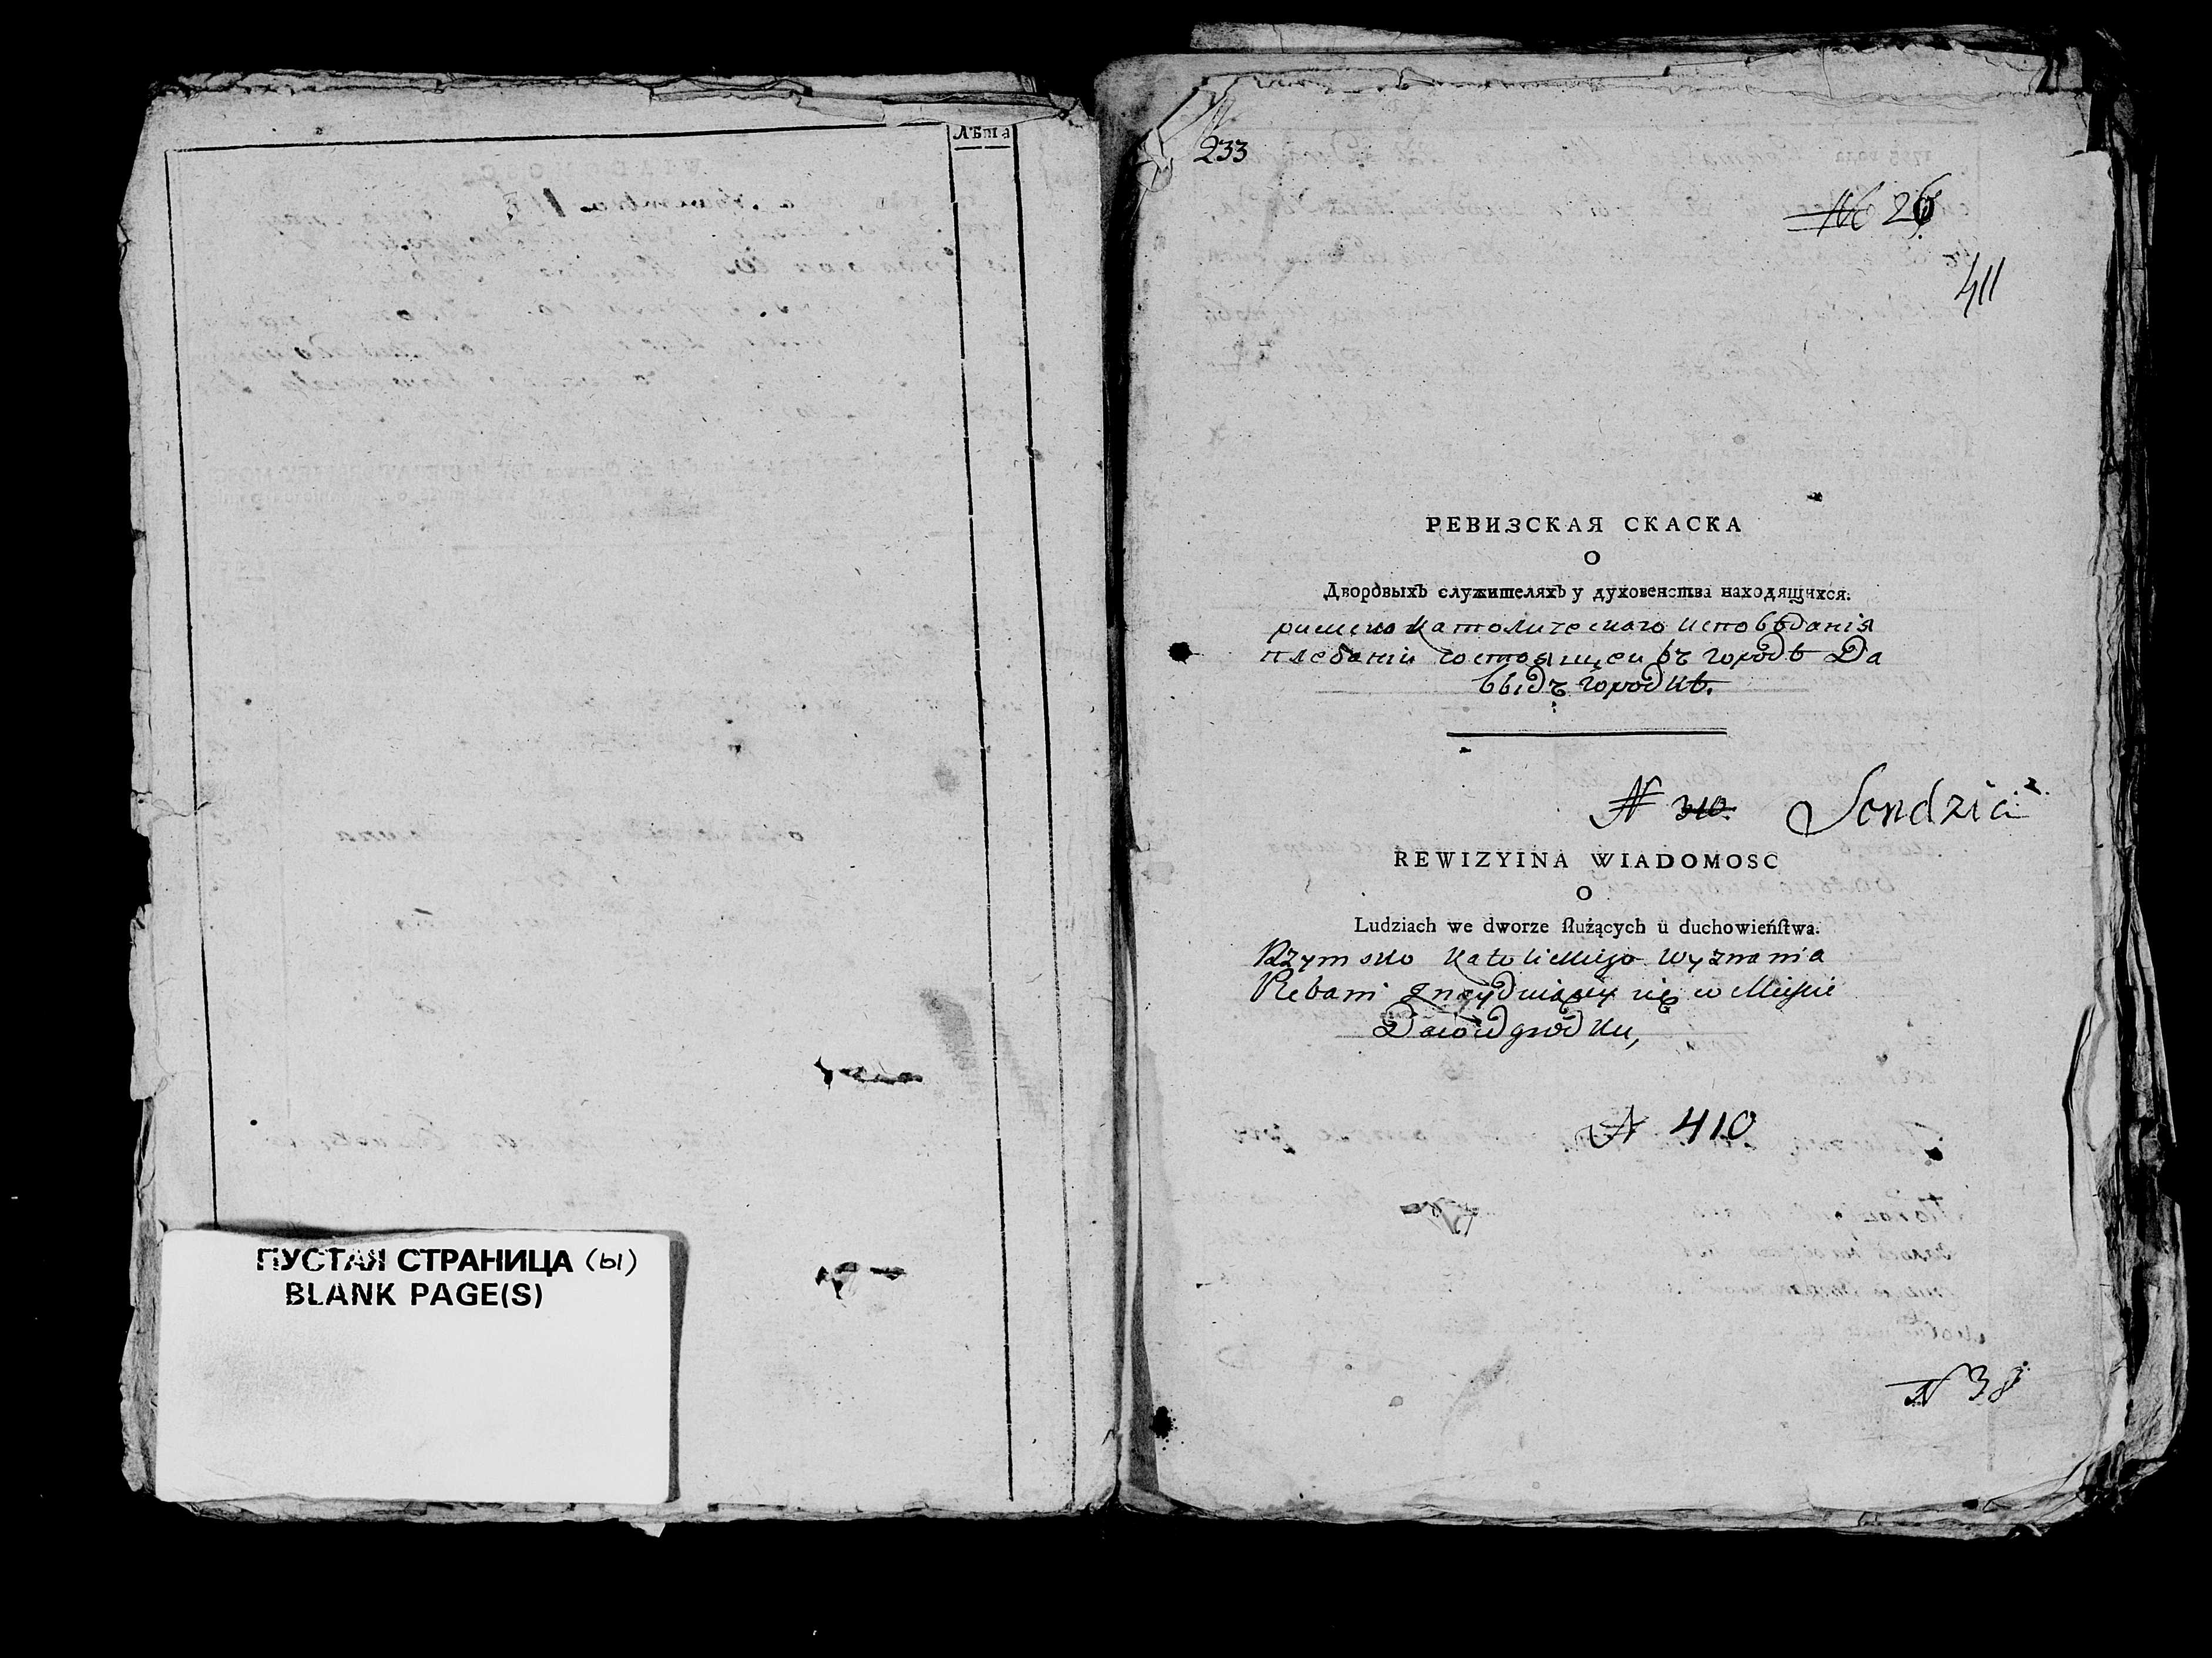 Лѣта
ПУСТАЯ СТРАНИЦА (ы)
BLANK PAGE(S)
233
№ 26
411
РЕВИЗСКАЯ СКАСКА
О
Дворовыхъ служителяхъ у духовенства находящихся.
римско католического исповѣданія
плебаніи состоящеи въ городѣ Да
выдъ городкѣ.
N 310.
REWIZYINA WIADOMOSC
O
Ludziach we dworze ſłużących u duchowieńſtwa.
Rzymsko katolickiego wyznania
Plebani znaydującey się w Mieście
Dawidgrodku,
N 410
N 38